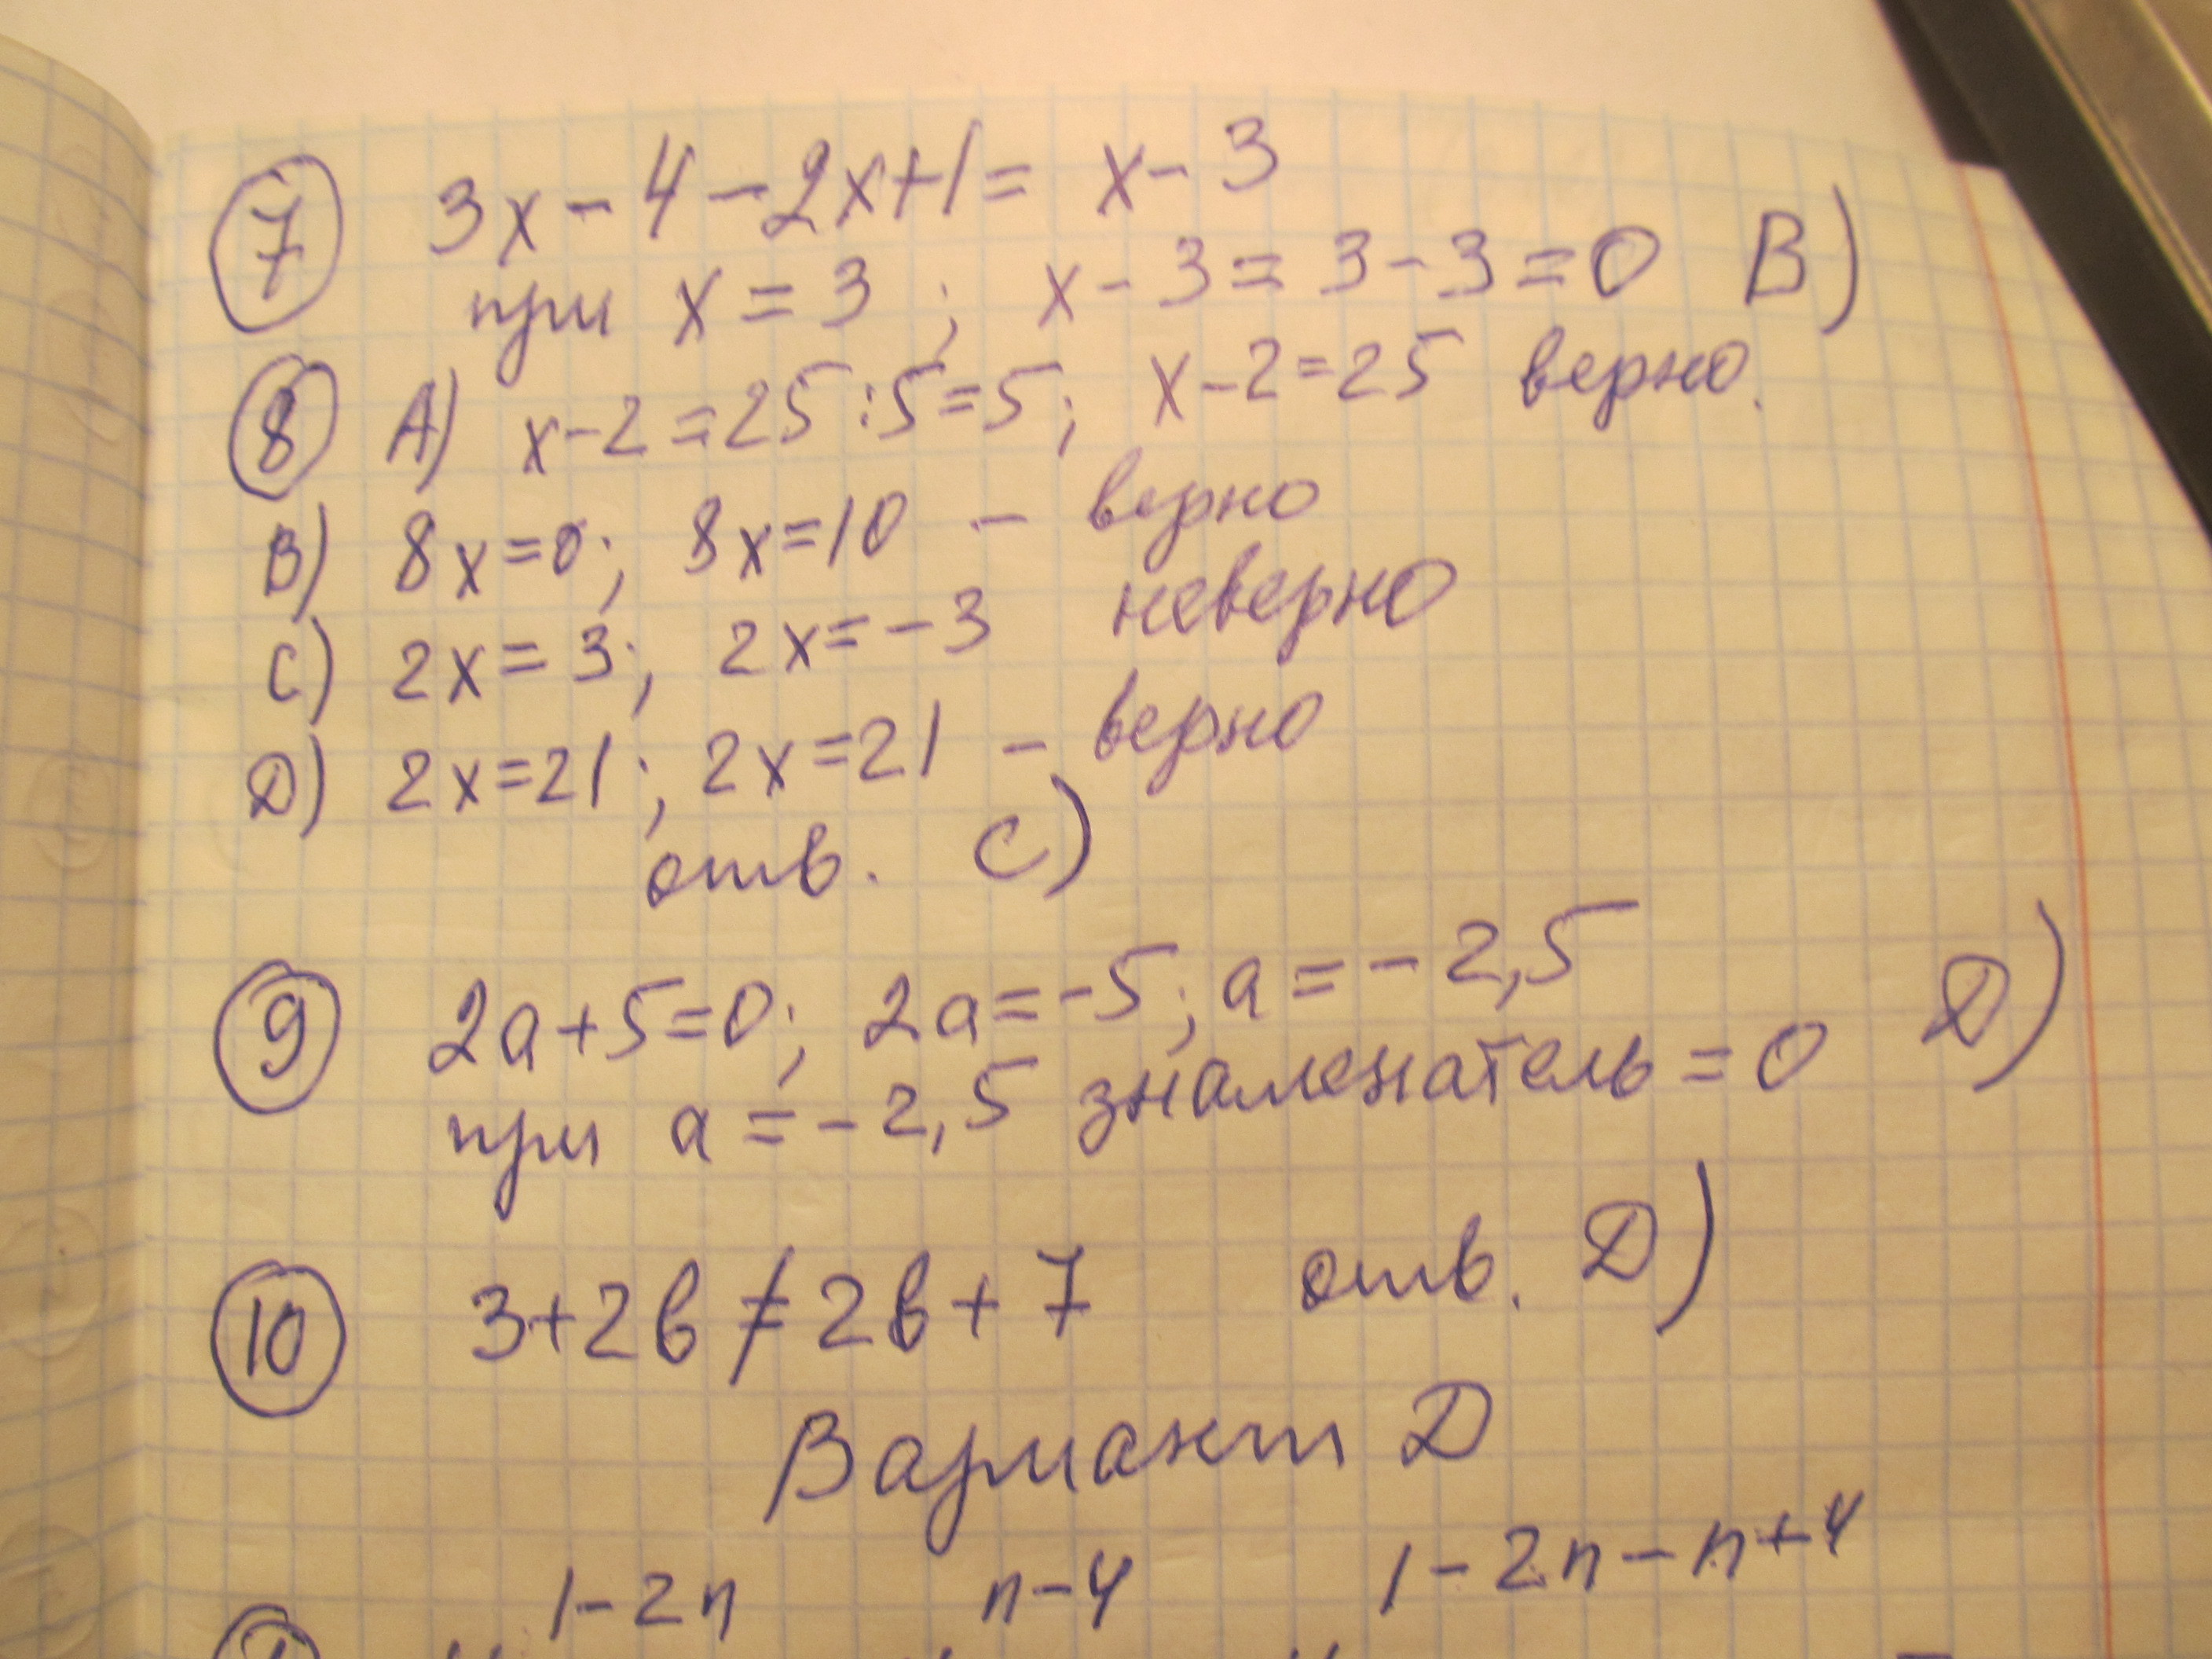 7 3x-4-2x+1= x-3
при x=3; x-3=3-3=0 В)
8 А) x-2=25:5=5; x-2=25 верно.
В) 8x=0; 8x=10 - верно
С) 2x=3; 2x=-3 неверно
D) 2x=21; 2x=21 - верно
отв. С)
9 2a+5=0; 2a=-5; a=-2,5
при a=-2,5 знаменатель=0 D)
10 3+2b≠2b+7 отв. D)
Вариант D
1-2n n-4 1-2n-n+4
1